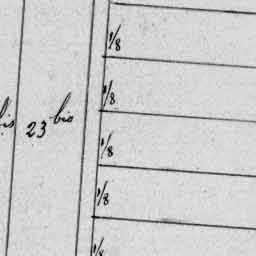 1/8
1/8
bis 23 bis
1/8
1/8
1/8